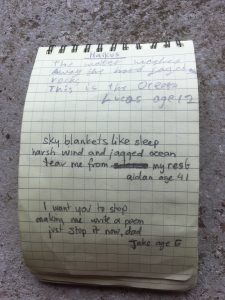 Haikus
The water washes
Away the hard jagged
rock
This is the Ocean
Lucas age 12
sky blankets like sleep
harsh wind and jagged ocean
tear me from my rest
aidan age 41
I want you to stop
making me write a poem
just stop it now, dad
Jake age 5